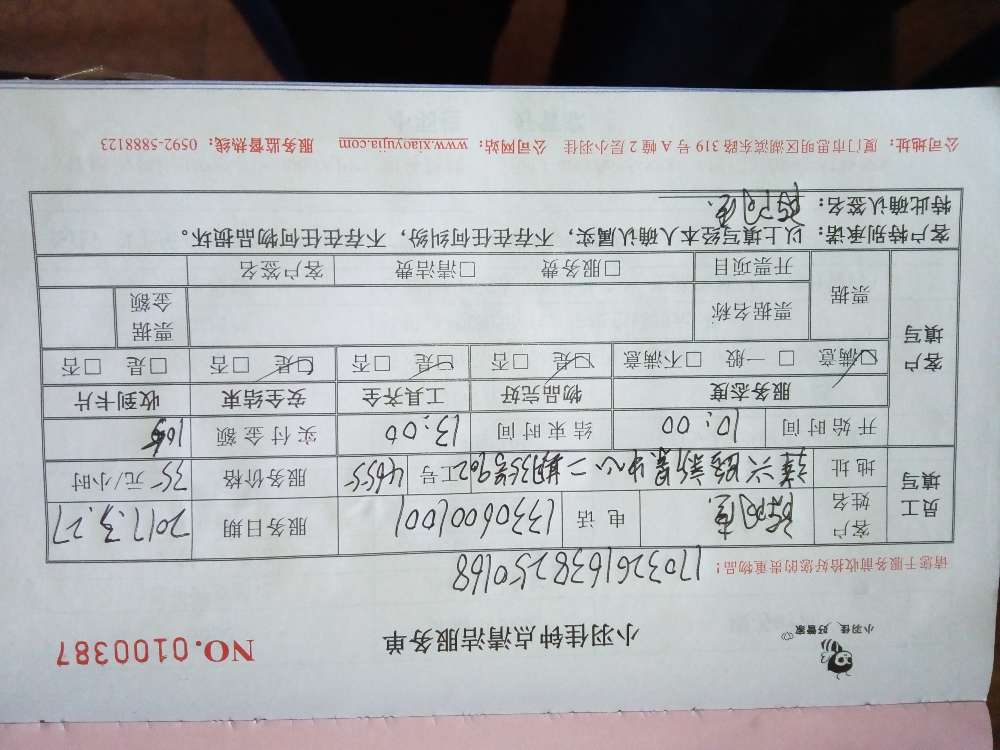 小羽佳 好管家
小羽佳钟点清洁服务单
NO.0100387
请您于服务前收拾好您的贵重物品！
1703261638250168
员工填写
客户姓名 电话 13306001001 服务日期 2017.3.27
地址 莲兴路新景中心二期35号902 工号 4655 服务价格 35 元/小时
开始时间 10:00 结束时间 13:00 实付金额 105
客户填写
服务态度 物品完好 工具齐全 安全结束 收到卡片
☑满意 □一般 □不满意 ☑是 □否 ☑是 □否 ☑是 □否 □是 □否
票据 票据名称 票据金额
开票项目 □服务费 □清洁费 客户签名
客户特别承诺：以上填写经本人确认属实，不存在任何纠纷，不存在任何物品损坏。
特此确认签名：
公司地址：厦门市思明区湖滨东路 319 号 A 幢 2 层小羽佳 公司网站：www.xiaoyujia.com 服务监督热线：0592-5888123